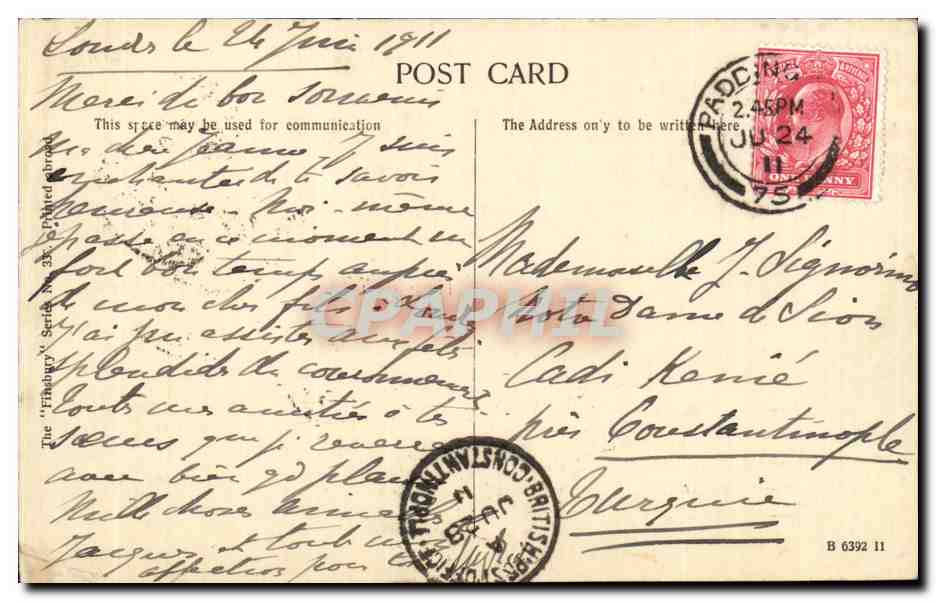 Londres le 24 Juin 1911
Merci de bon souvenir
POST CARD
This space may be used for communication
The Address on'y to be written here
Ma chère Jeanne Je suis
enchantée de te savoir
heureuse. Moi-même
je passe en ce moment un
fort bon temps auprès
de mon cher fils
J'ai pu assister aux fêtes
splendides du couronnement
Toutes mes amitiés à tes
sœurs que je reverrai
avec bien gd plaisir
Mille choses
Jacques et tout
affection pour
Mademoiselle J. Signorino
Notre Dame de Sion
Cadi Keuié
près Constantinople
Turquie
PADDING
2.45PM
JU 24
11
75
ONE PENNY
BRITISH POST OFFICE CONSTANTINOPLE
JU 28
11
The "Finsbury" Series No. 33. Printed abroad.
B 6392 11
CPAPHIL